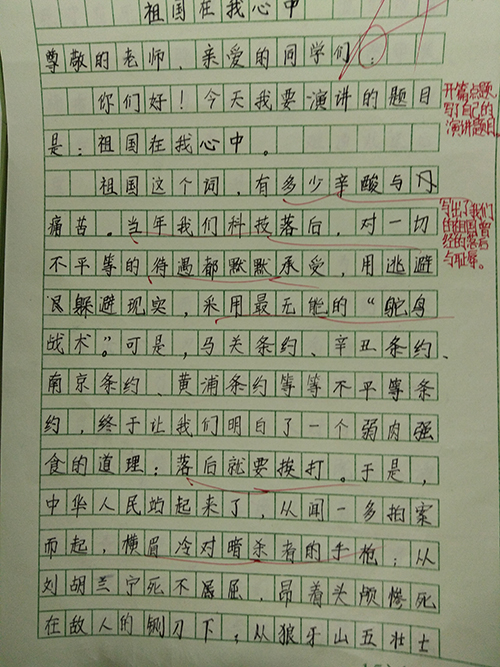 祖国在我心中
尊敬的老师、亲爱的同学们:
你们好!今天我要演讲的题目
是:祖国在我心中。
祖国这个词,有多少辛酸与
痛苦。当年我们科技落后,对一切
不平等的待遇都默默承受,用逃避
躲避现实,采用最无能的“鸵鸟
战术”。可是,马关条约、辛丑条约、
南京条约、黄浦条约等等不平等条
约,终于让我们明白了一个弱肉强
食的道理:落后就要挨打。于是,
中华人民站起来了,从闻一多拍案
而起,横眉冷对暗杀者的手枪;从
刘胡兰宁死不屈,昂着头颅惨死
在敌人的铡刀下;从狼牙山五壮士
开篇点题,
写了自己的
演讲题目。
写出了我们
的祖国曾
经的落后
与耻辱。